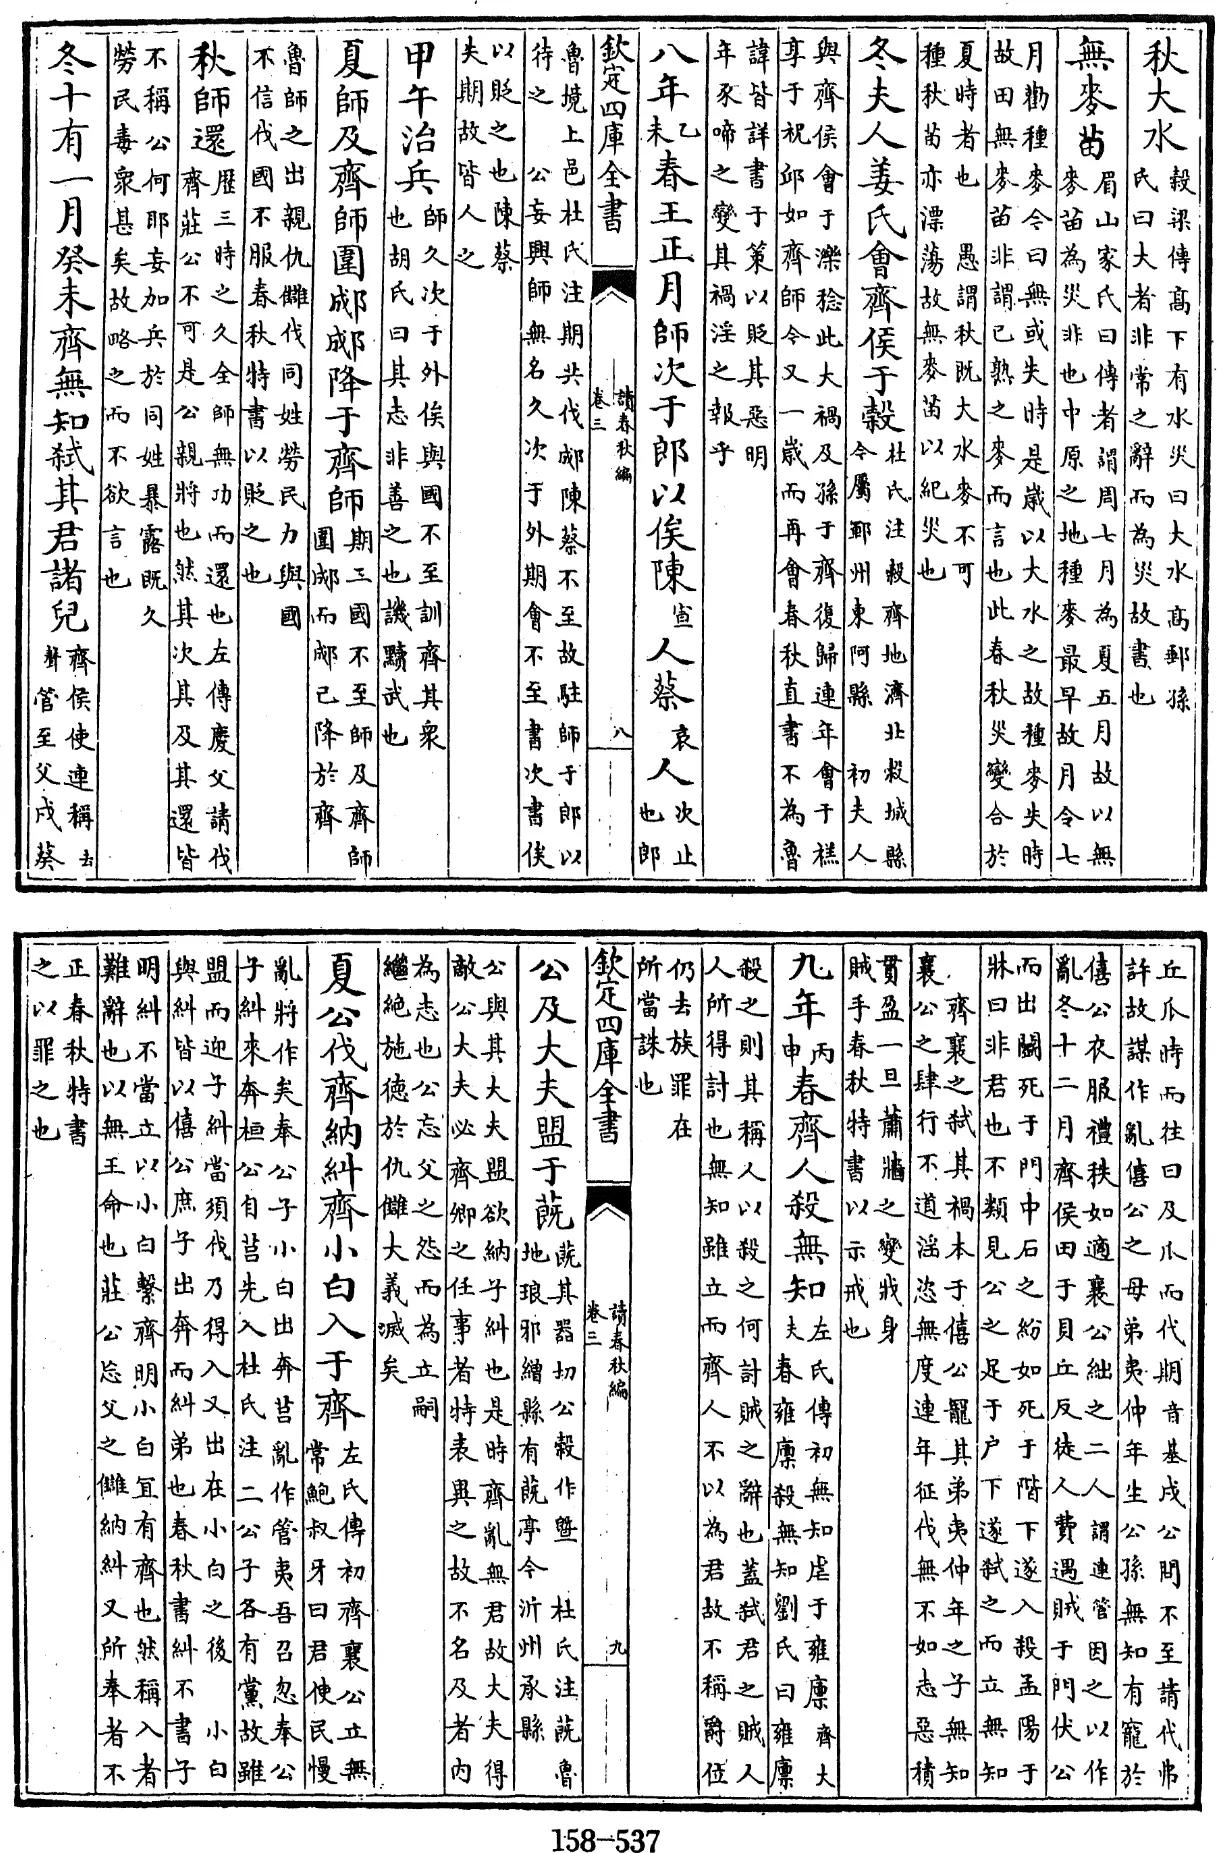 秋大水穀梁傳髙下有水災曰大水髙郵孫
氏曰大者非常之辭而為災故書也
無麥苗眉山家氏曰傳者謂周七月為夏五月故以無
麥苗為災非也中原之地種麥最早故月令七
月勸種麥令曰無或失時是歲以大水之故種麥失時
故田無麥苗非謂已熟之麥而言也此春秋災變合於
夏時者也　愚謂秋既大水麥不可
種秋苗亦漂蕩故無麥苗以紀災也
冬夫人姜氏㑹齊侯于榖杜氏注穀齊地濟北穀城縣
今屬鄆州東阿縣　初夫人
與齊侯㑹于濼稔此大禍及孫于齊復歸連年㑹于禚
享于祝邱如齊師今又一嵗而再㑹春秋直書不為魯
諱皆詳書于策以貶其惡明
年豕啼之變其禍淫之報乎
八年乙未春王正月師次于郎以俟陳宣人蔡哀人次止
也郎
欽定四庫全書
讀春秋編
卷三
八
魯境上邑杜氏注期共伐郕陳蔡不至故駐師于郎以
待之　公妄興師無名久次于外期㑹不至書次書俟
以貶之也陳蔡
失期故皆人之
甲午治兵師久次于外俟與國不至訓齊其衆
也胡氏曰其志非善之也譏黷武也
夏師及齊師圍郕郕降于齊師期三國不至師及齊師
圍郕而郕已降於齊
魯師之出親仇讎伐同姓勞民力與國
不信伐國不服春秋特書以貶之也
秋師還歴三時之久全師無功而還也左傳慶父請伐
齊莊公不可是公親將也然其次其及其還皆
不稱公何耶妄加兵於同姓暴露既久
勞民毒衆甚矣故略之而不欲言也
冬十有一月癸未齊無知弑其君諸兒齊侯使連稱去
聲管至父戍葵
丘瓜時而往曰及瓜而代期音基戍公問不至請代弗
許故謀作亂僖公之母弟夷仲年生公孫無知有寵於
僖公衣服禮秩如適襄公絀之二人謂連管因之以作
亂冬十二月齊侯田于貝丘反徒人費遇賊于門伏公
而出鬭死于門中石之紛如死于階下遂入殺孟陽于
牀曰非君也不類見公之足于户下遂弑之而立無知
　齊襄之弑其禍本于僖公寵其弟夷仲年之子無知
襄公之肆行不道淫恣無度連年征伐無不如志惡積
貫盈一旦蕭牆之變戕身
賊手春秋特書以示戒也
九年丙申春齊人殺無知左氏傳初無知虐于雍廪齊大
夫　春雍廪殺無知劉氏曰雍廪
殺之則其稱人以殺之何討賊之辭也蓋弑君之賊人
人所得討也無知雖立而齊人不以為君故不稱爵位
仍去族罪在
所當誅也
欽定四庫全書
讀春秋編
卷三
九
公及大夫盟于蔇蔇其器切公穀作曁　杜氏注蔇魯
地琅邪繒縣有蔇亭今沂州承縣
公與其大夫盟欲納子糾也是時齊亂無君故大夫得
敵公大夫必齊卿之任事者特表異之故不名及者内
為志也公忘父之怨而為立嗣
繼絶施徳於仇讎大義滅矣
夏公伐齊納糾齊小白入于齊左氏傳初齊襄公立無
常鮑叔牙曰君使民慢
亂將作矣奉公子小白出奔莒亂作管夷吾召忽奉公
子糾來奔桓公自莒先入杜氏注二公子各有黨故雖
盟而迎子糾當須伐乃得入又出在小白之後　小白
與糾皆以僖公庶子出奔而糾弟也春秋書糾不書子
明糾不當立以小白繫齊明小白宜有齊也然稱入者
難辭也以無王命也莊公忘父之讎納糾又所奉者不
正春秋特書
之以罪之也
158-537